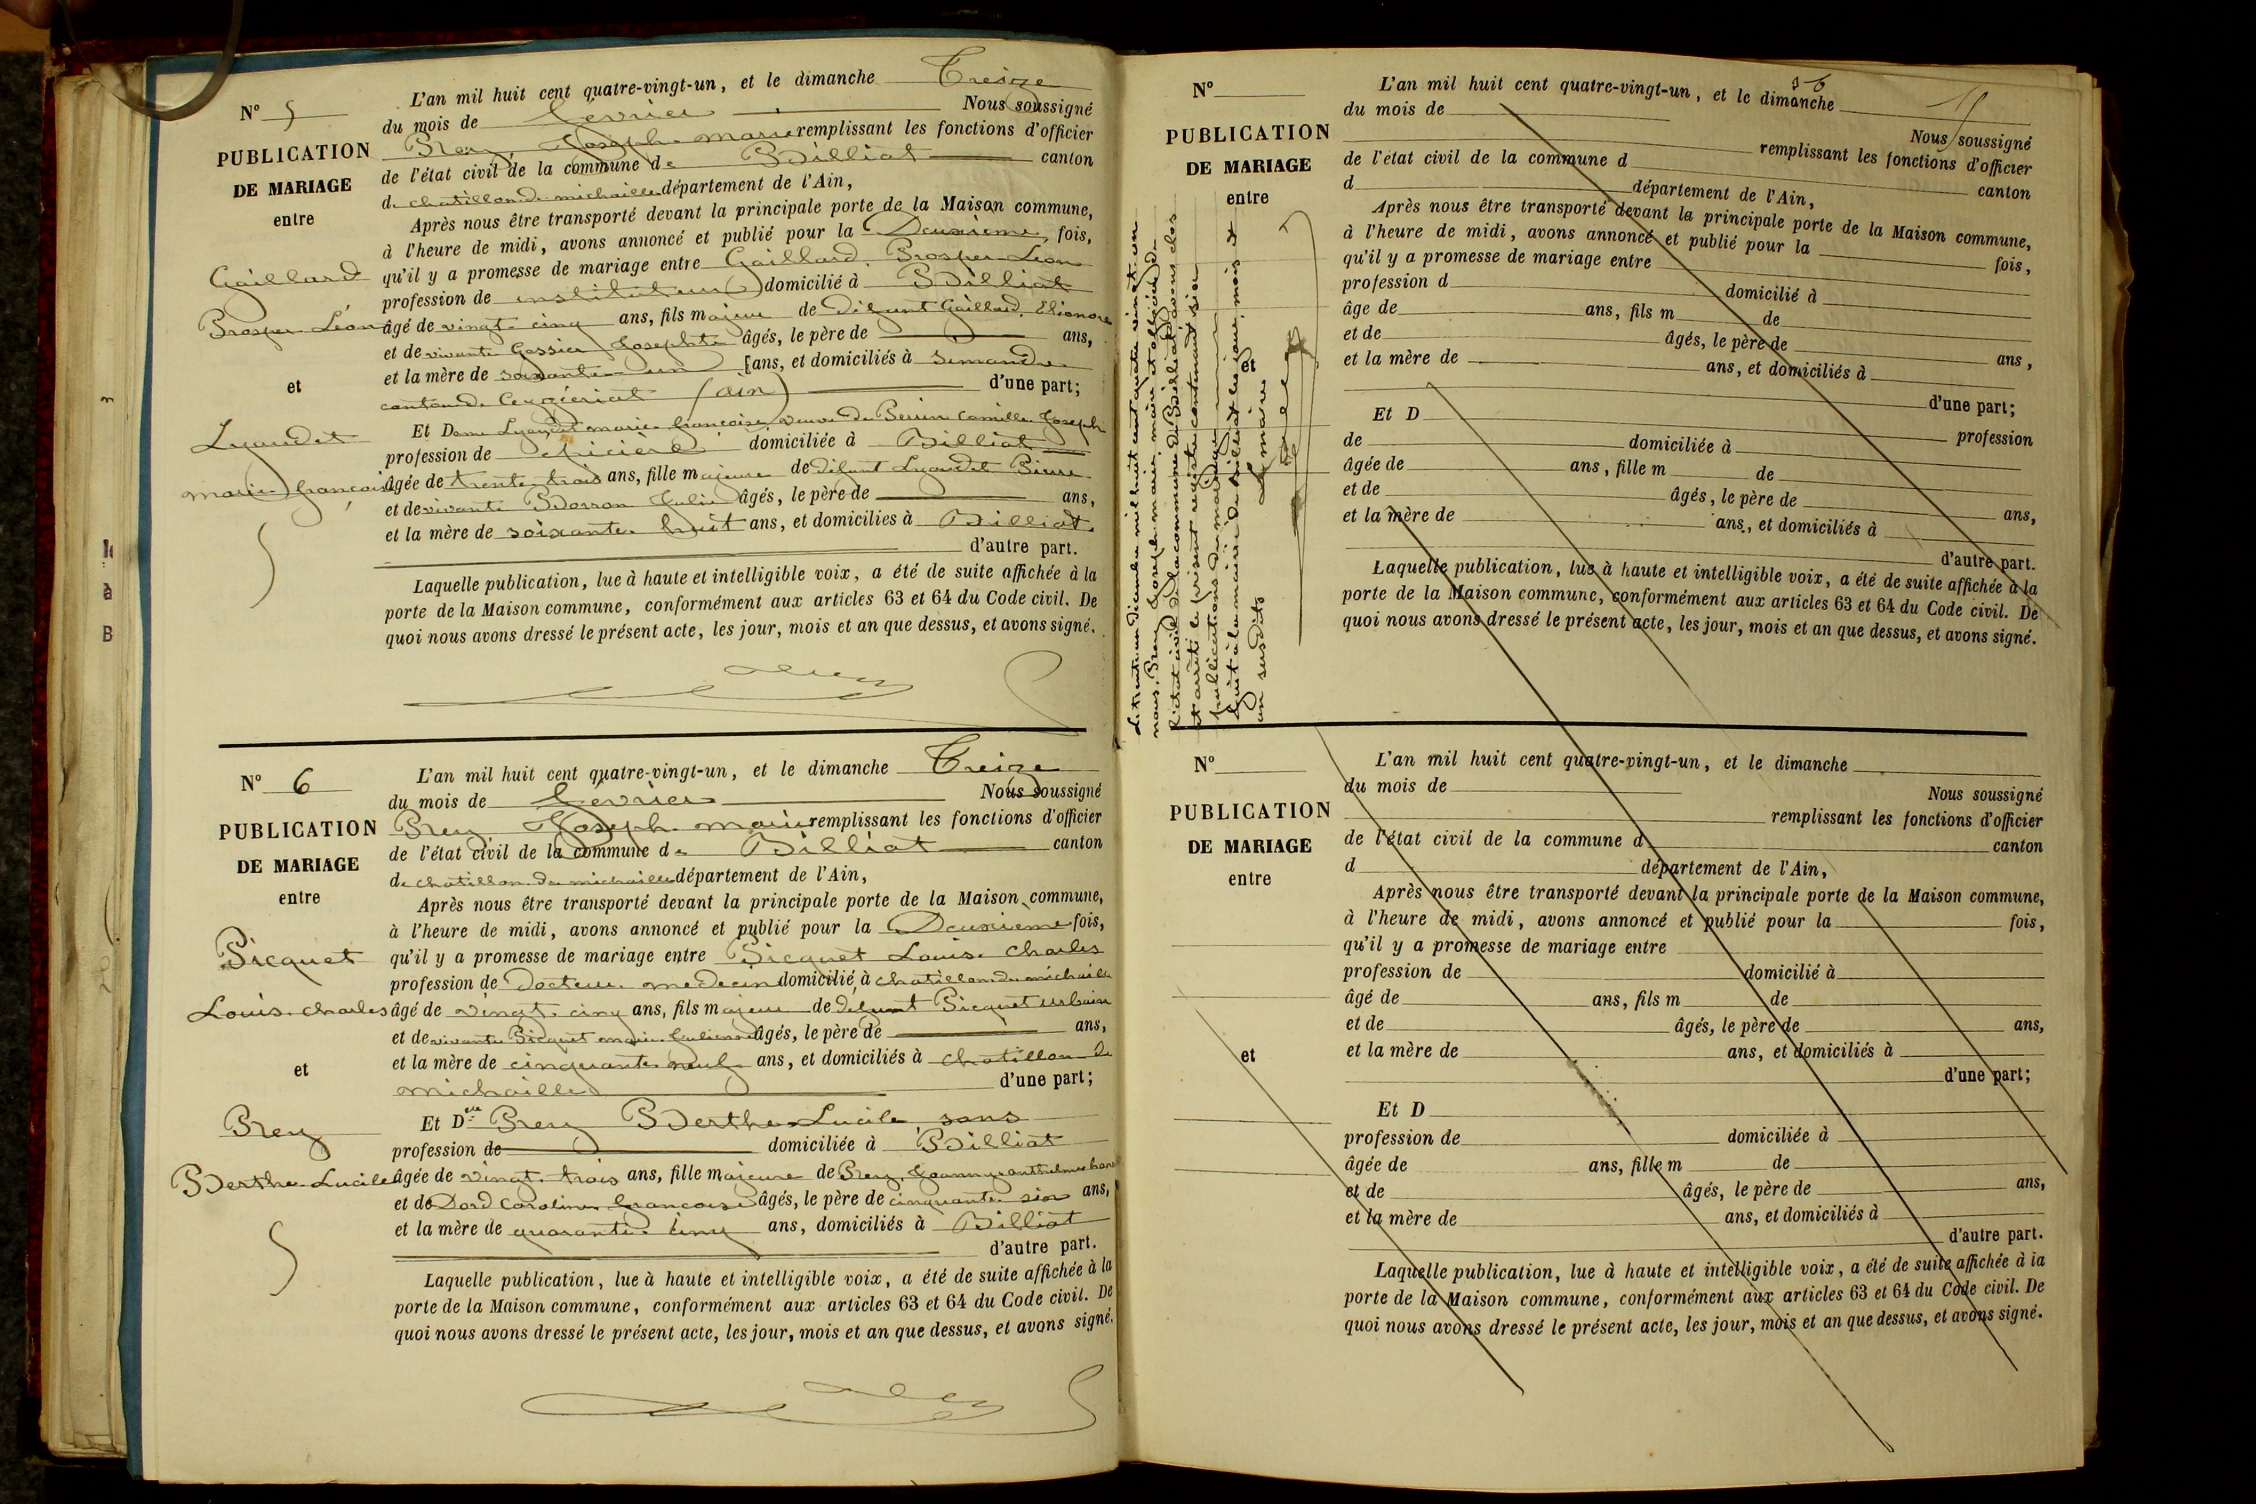 N° 5
PUBLICATION
DE MARIAGE
entre
Gaillard
Prosper Léon
et
Lyaudet
marie françoise
L'an mil huit cent quatre-vingt-un, et le dimanche Treize
du mois de février Nous soussigné
Brey, Joseph marie remplissant les fonctions d'officier
de l'état civil de la commune de Billiat canton
de chatillon de michaille département de l'Ain,
Après nous être transporté devant la principale porte de la Maison commune,
à l'heure de midi, avons annoncé et publié pour la Deuxième fois,
qu'il y a promesse de mariage entre Gaillard, Prosper Léon
profession de instituteur domicilié à Billiat
âgé de vingt cinq ans, fils majeur de défunt Gaillard, Elionore
et de vivante Gossier Josephte âgés, le père de ans,
et la mère de soixante un ans, et domiciliés à Simandre
canton de Ceyzériat (ain) d'une part;
Et Dame Lyaudet marie françoise veuve de Perrin Camille Joseph
profession de épicière domiciliée à Billiat
âgée de trente trois ans, fille majeure de défunt Lyaudet Pierre
et de vivante Borron Julie âgés, le père de ans,
et la mère de soixante huit ans, et domiciliés à Billiat
d'autre part.
Laquelle publication, lue à haute et intelligible voix, a été de suite affichée à la
porte de la Maison commune, conformément aux articles 63 et 64 du Code civil. De
quoi nous avons dressé le présent acte, les jour, mois et an que dessus, et avons signé.
Brey
N° 6
PUBLICATION
DE MARIAGE
entre
Picquet
Louis Charles
et
Brey
Berthe Lucile
L'an mil huit cent quatre-vingt-un, et le dimanche Treize
du mois de février Nous soussigné
Brey, Joseph marie remplissant les fonctions d'officier
de l'état civil de la commune de Billiat canton
de chatillon de michaille département de l'Ain,
Après nous être transporté devant la principale porte de la Maison commune,
à l'heure de midi, avons annoncé et publié pour la Deuxième fois,
qu'il y a promesse de mariage entre Picquet Louis Charles
profession de Docteur medecin domicilié à chatillon de michaille
âgé de vingt cinq ans, fils majeur de défunt Picquet urbain
et de vivante Picquet marie Julienne âgés, le père de ans,
et la mère de cinquante neuf ans, et domiciliés à chatillon de
michaille d'une part;
Et Delle Brey Berthe Lucile sans
profession de domiciliée à Billiat
âgée de vingt trois ans, fille majeure de Brey, Joanny anthelme
et de Dord Caroline françoise âgés, le père de cinquante six ans,
et la mère de quarante cinq ans, domiciliés à Billiat
d'autre part.
Laquelle publication, lue à haute et intelligible voix, a été de suite affichée à la
porte de la Maison commune, conformément aux articles 63 et 64 du Code civil. De
quoi nous avons dressé le présent acte, les jour, mois et an que dessus, et avons signé.
Brey
N°
PUBLICATION
DE MARIAGE
entre
et
Le trente un décembre mil huit cent quatre vingt un
nous, Brey Joseph marie, maire et officier de
l'état civil de la commune de Billiat avons clos
et arrêté le présent registre contenant six
publications de mariage
fait à la mairie de Billiat les jour, mois et
an susdits Le maire
Brey
L'an mil huit cent quatre-vingt-un, et le dimanche
du mois de
Nous soussigné
remplissant les fonctions d'officier
de l'état civil de la commune d canton
d département de l'Ain,
Après nous être transporté devant la principale porte de la Maison commune,
à l'heure de midi, avons annoncé et publié pour la fois,
qu'il y a promesse de mariage entre
profession d domicilié à
âge de ans, fils m de
et de âgés, le père de ans,
et la mère de ans, et domiciliés à
d'une part;
Et D profession
de domiciliée à
âgée de ans, fille m de
et de âgés, le père de ans,
et la mère de ans, et domiciliés à
d'autre part.
Laquelle publication, lue à haute et intelligible voix, a été de suite affichée à la
porte de la Maison commune, conformément aux articles 63 et 64 du Code civil. De
quoi nous avons dressé le présent acte, les jour, mois et an que dessus, et avons signé.
N°
PUBLICATION
DE MARIAGE
entre
et
L'an mil huit cent quatre-vingt-un, et le dimanche
du mois de Nous soussigné
remplissant les fonctions d'officier
de l'état civil de la commune d canton
d département de l'Ain,
Après nous être transporté devant la principale porte de la Maison commune,
à l'heure de midi, avons annoncé et publié pour la fois,
qu'il y a promesse de mariage entre
profession de domicilié à
âgé de ans, fils m de
et de âgés, le père de ans,
et la mère de ans, et domiciliés à
d'une part;
Et D
profession de domiciliée à
âgée de ans, fille m de
et de âgés, le père de ans,
et la mère de ans, et domiciliés à
d'autre part.
Laquelle publication, lue à haute et intelligible voix, a été de suite affichée à la
porte de la Maison commune, conformément aux articles 63 et 64 du Code civil. De
quoi nous avons dressé le présent acte, les jour, mois et an que dessus, et avons signé.